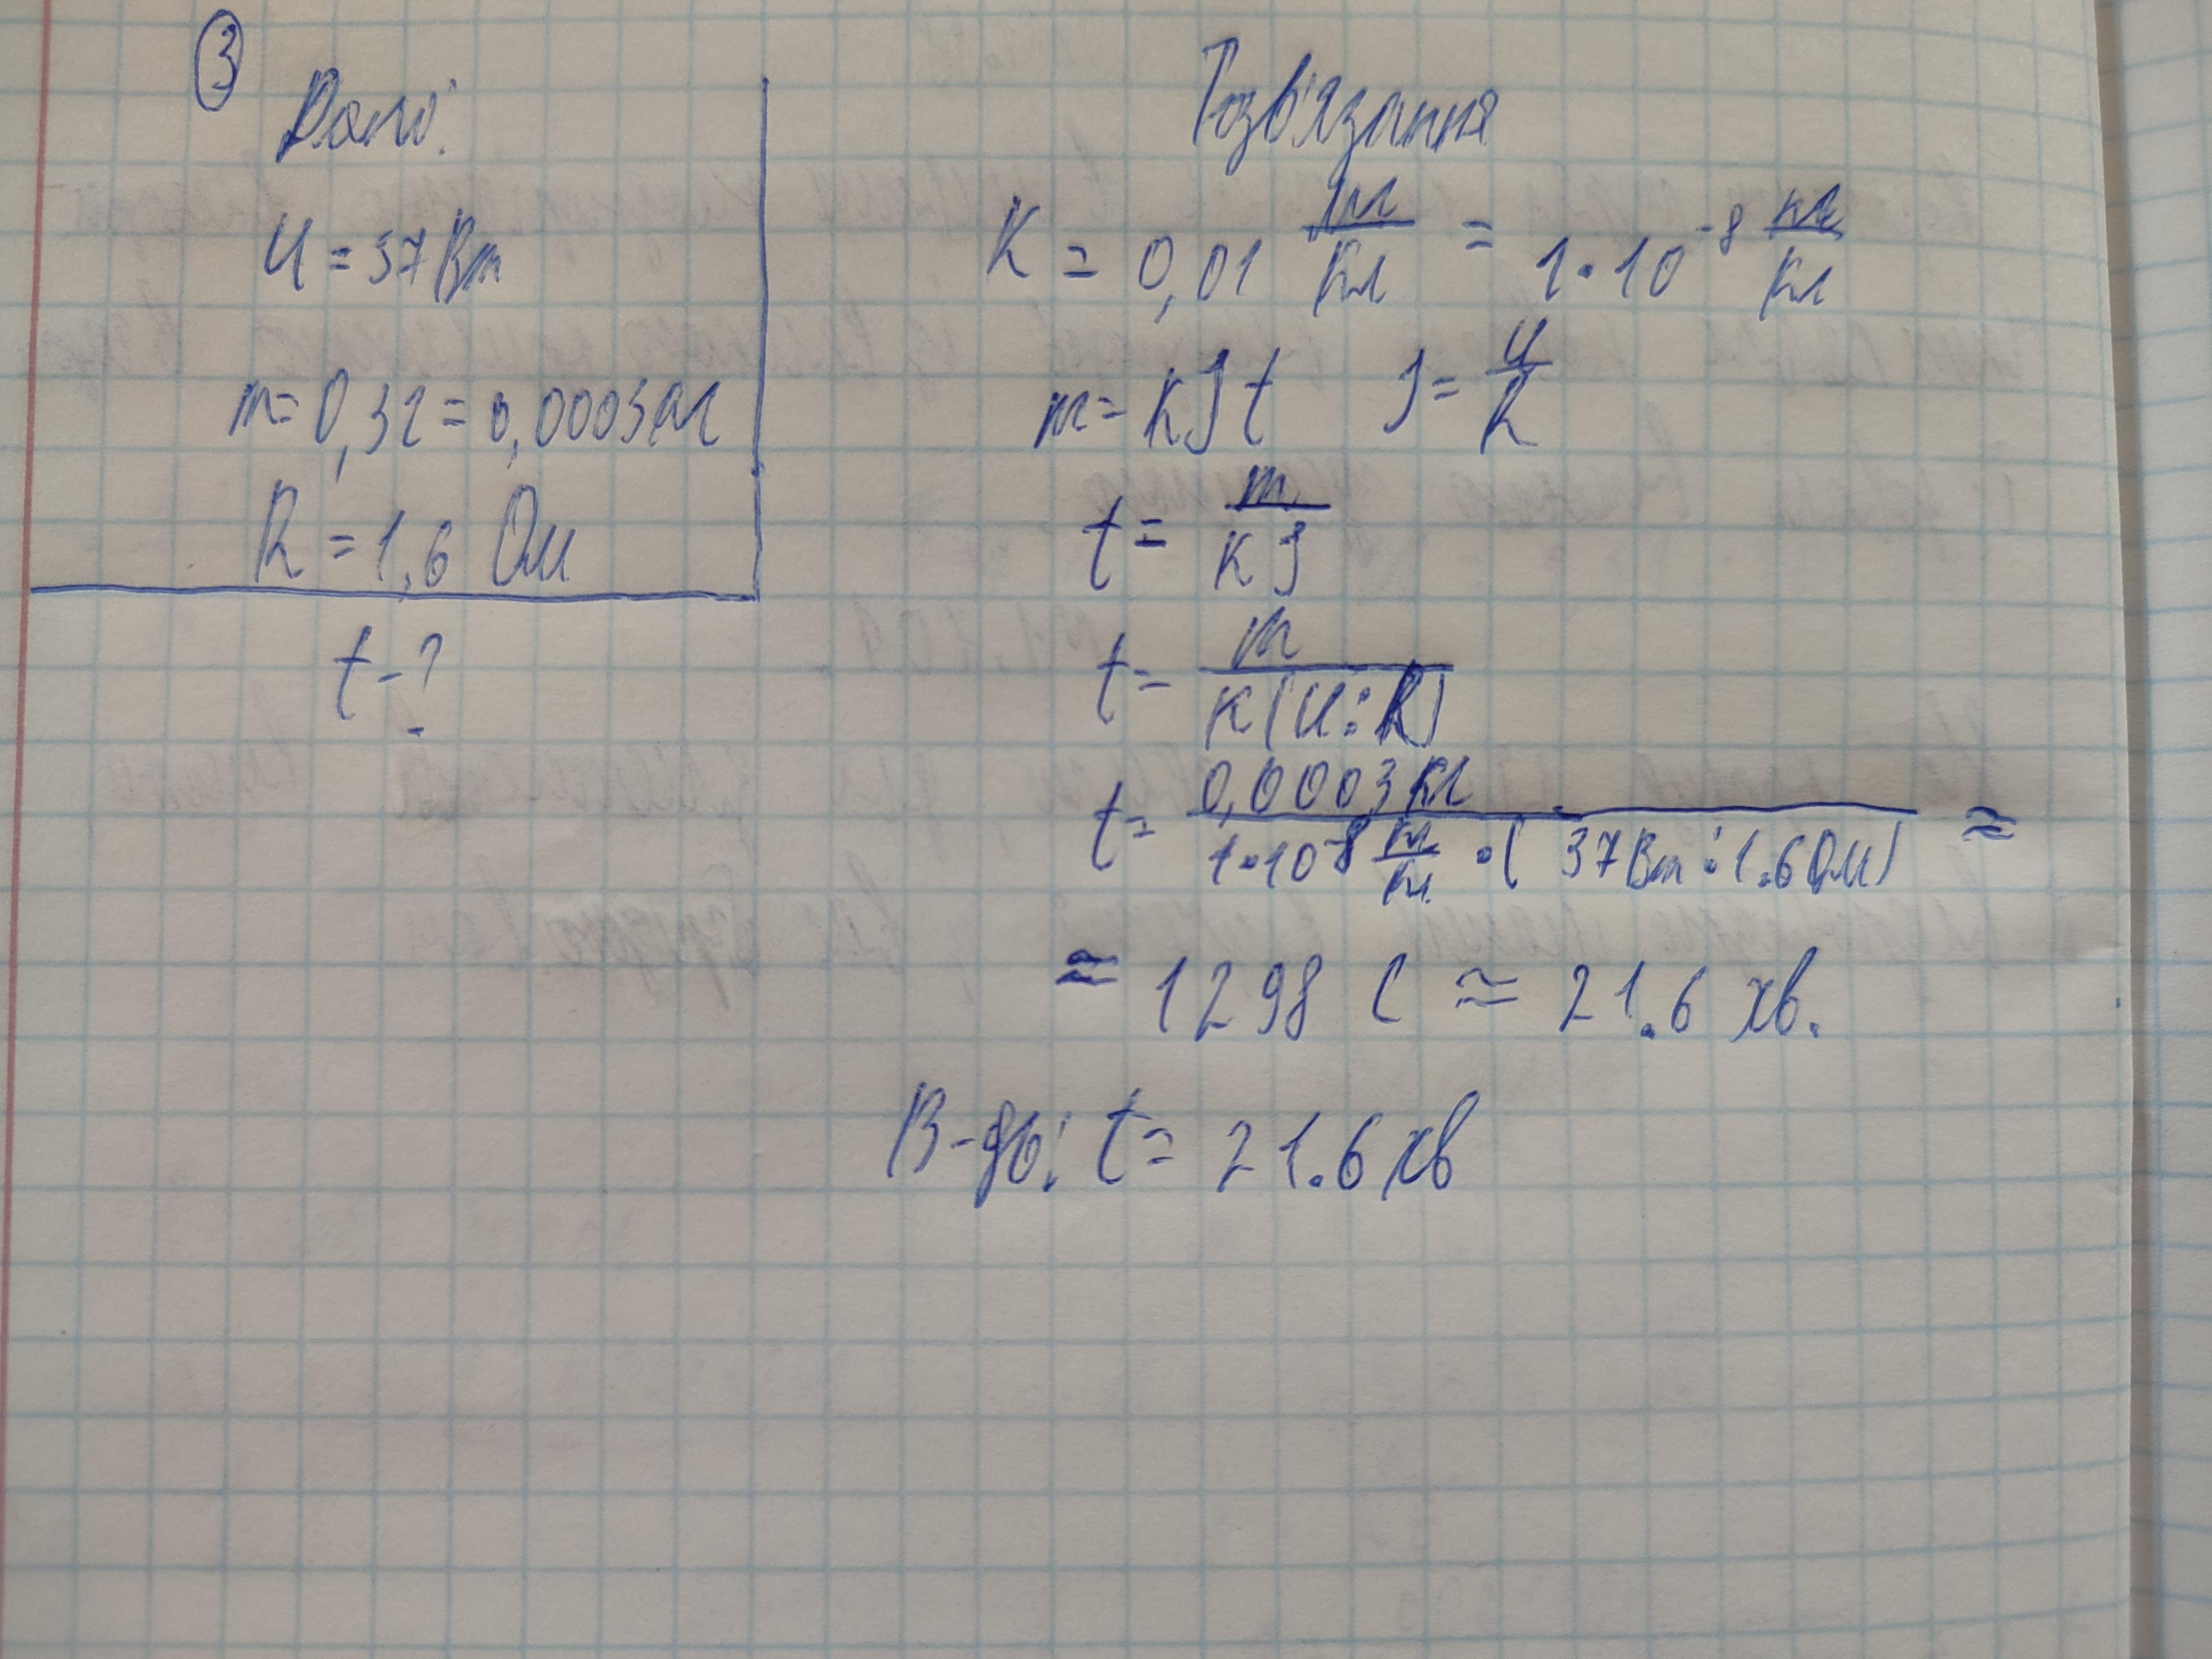 ③
Дано:
U = 37 Вт
m = 0,3г = 0,0003 кг
R = 1,6 Ом
t - ?
Розв'язання
K = 0,01 мг/Кл = 1·10⁻⁸ кг/Кл
m = kIt I = U/R
t = m/kI
t = m/k(U:R)
t = 0,0003 кг/1·10⁻⁸ кг/Кл · (37Вт : 1.6 Ом) ≈
≈ 1298 с ≈ 21.6 хв.
В-дь: t = 21.6 хв